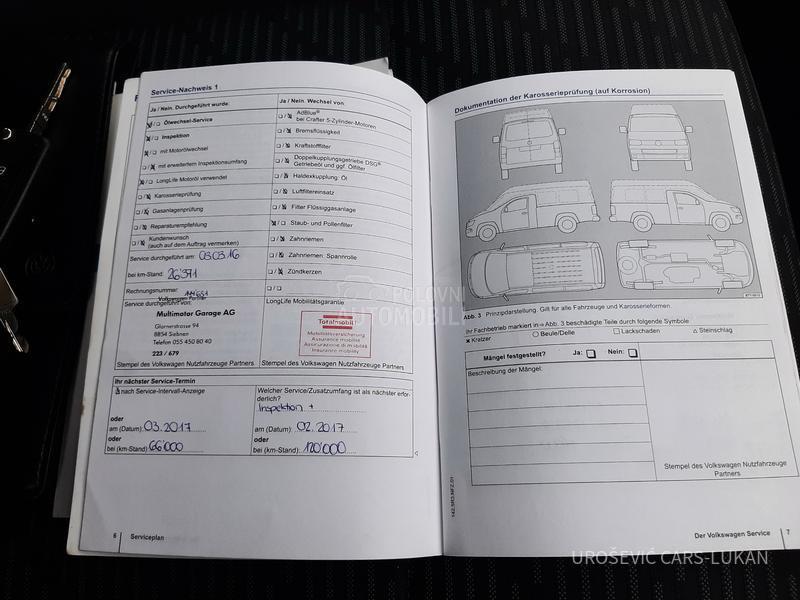 Service-Nachweis 1
Ja / Nein. Durchgeführt wurde:
Ölwechsel-Service
Inspektion
mit Motorölwechsel
mit erweitertem Inspektionsumfang
LongLife Motoröl verwendet
Karosserieprüfung
Gasanlagenprüfung
Reparaturempfehlung
Kundenwunsch
(auch auf dem Auftrag vermerken)
Service durchgeführt am: 03.03.16
bei km-Stand: 26'371
Rechnungsnummer:
Service durchgeführt von:
Volkswagen Partner
Multimotor Garage AG
Glarnerstrasse 94
8854 Siebnen
Telefon 055 450 80 40
223 / 679
Stempel des Volkswagen Nutzfahrzeuge Partners
Ja / Nein. Wechsel von:
AdBlue®
bei Crafter 5-Zylinder-Motoren
Bremsflüssigkeit
Kraftstofffilter
Doppelkupplungsgetriebe DSG®
Getriebeöl und ggf. Ölfilter
Haldexkupplung: Öl
Luftfiltereinsatz
Filter Flüssiggasanlage
Staub- und Pollenfilter
Zahnriemen
Zahnriemen: Spannrolle
Zündkerzen
LongLife Mobilitätsgarantie
Totalmobil!
Mobilitätsversicherung
Assurance mobilité
Assicurazione di mobilità
Insurance mobility
Stempel des Volkswagen Nutzfahrzeuge Partners
Ihr nächster Service-Termin
nach Service-Intervall-Anzeige
oder
am (Datum): 03.2017
oder
bei (km-Stand): 66'000
Welcher Service/Zusatzumfang ist als nächster erfor-
derlich?
Inspektion +
am (Datum): 02.2017
oder
bei (km-Stand): 120'000
6 Serviceplan
Dokumentation der Karosserieprüfung (auf Korrosion)
Abb. 3 Prinzipdarstellung. Gilt für alle Fahrzeuge und Karosserieformen.
Ihr Fachbetrieb markiert in ⇒ Abb. 3 beschädigte Teile durch folgende Symbole
Kratzer
Beule/Delle
Lackschaden
Steinschlag
Mängel festgestellt? Ja: Nein:
Beschreibung der Mängel:
Stempel des Volkswagen Nutzfahrzeuge
Partners
142.5R3.NFZ.01
Der Volkswagen Service 7
POLOVNI
AUTOMOBILI
UROŠEVIĆ CARS-LUKAN